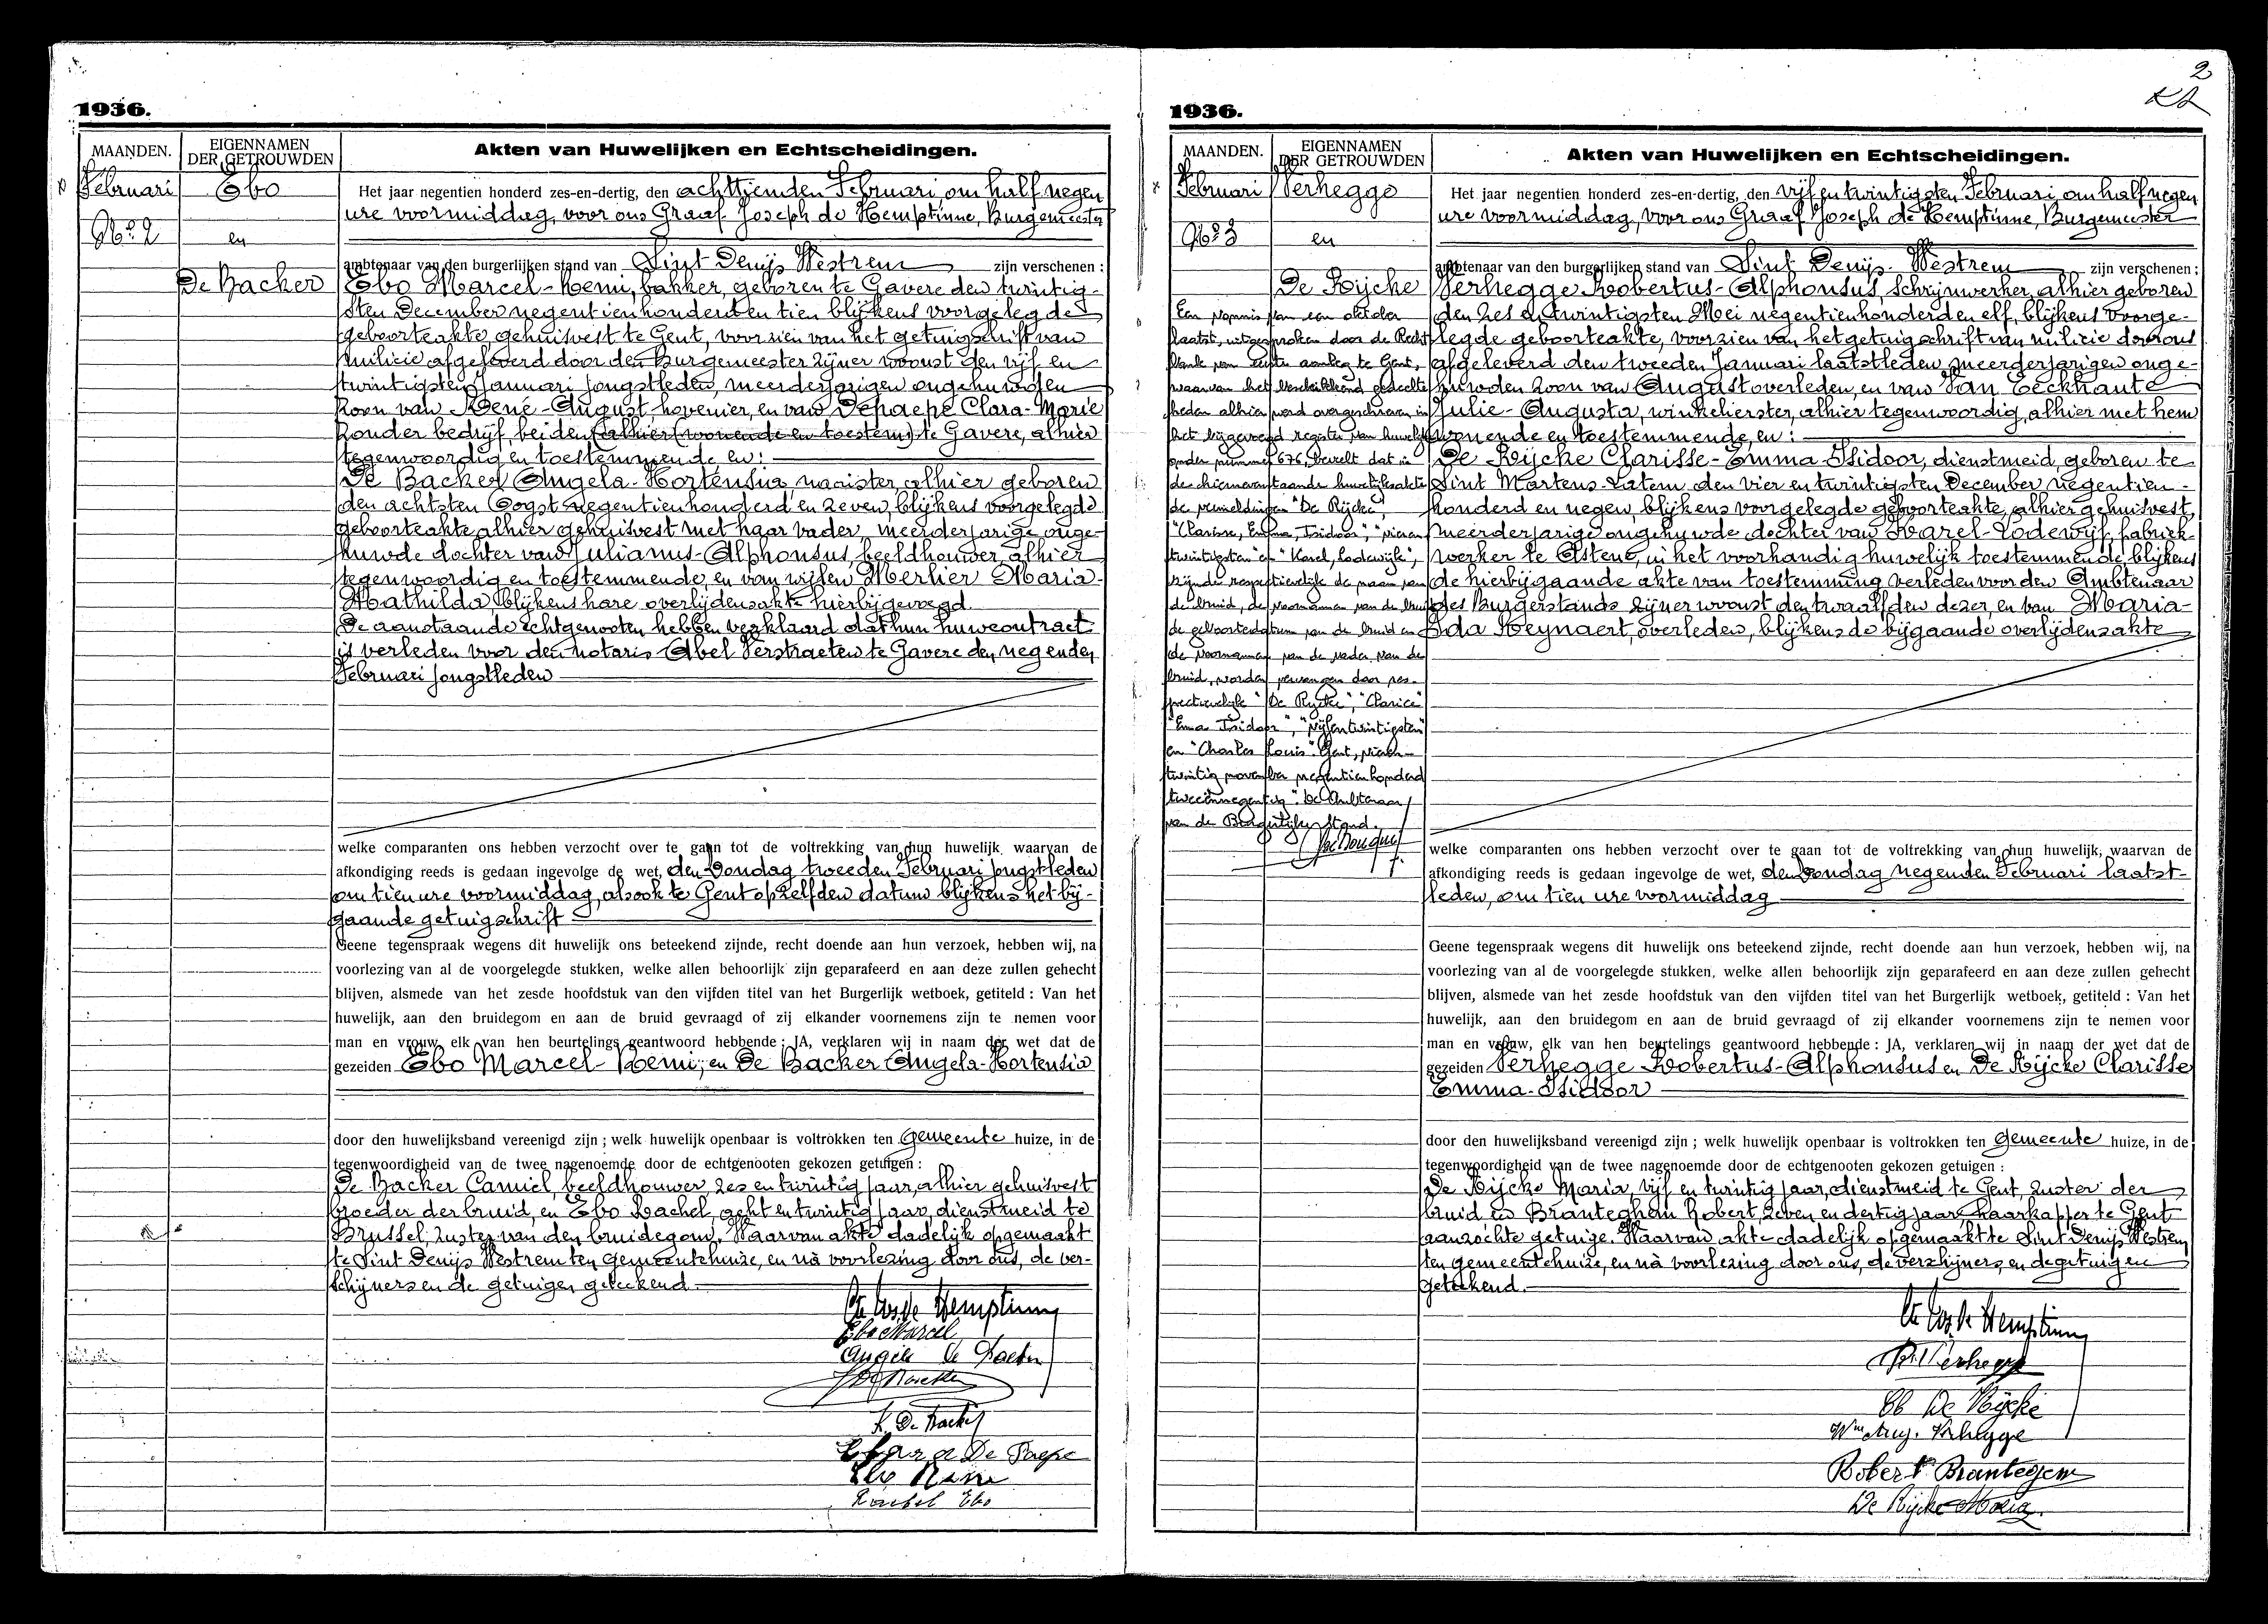 1936.
MAANDEN.
EIGENNAMEN
DER GETROUWDEN
Akten van Huwelijken en Echtscheidingen.
Februari
No. 2
Ebo
en
De Backer
Het jaar negentien honderd zes-en-dertig, den achttienden Februari, om half negen
ure voormiddag, voor ons Graaf Joseph de Hemptinne, Burgemeester
ambtenaar van den burgerlijken stand van Sint Denijs Westrem zijn verschenen :
Ebo Marcel-Remi, bakker, geboren te Gavere den twintig-
sten December negentienhonderd en tien blijkens voorgelegde
geboorteakte, gehuisvest te Gent, voorzien van het getuigschrift van
militie afgeleverd door den Burgemeester zijner woonst den vijf en
twintigsten Januari jongstleden, meerderjarigen ongehuwden
zoon van René-August, hovenier, en van Depaepe Clara-Marie
zonder bedrijf, beiden (alhier (wonende en toestem) te Gavere, alhier
tegenwoordig en toestemmende en:
De Backer Angela-Hortensia, naaister, alhier geboren
den achtsten Oogst negentienhonderd en zeven, blijkens voorgelegde
geboorteakte alhier gehuisvest met haar vader, meerderjarige onge-
huwde dochter van Julianus-Alphonsus, beeldhouwer, alhier
tegenwoordig en toestemmende, en van wijlen Merlier Maria-
Mathilda, blijkens hare overlijdensakte hierbijgevoegd.
De aanstaande echtgenooten hebben verklaard dat hun huwcontract
is verleden voor den notaris Abel Verstraeten te Gavere den negenden
Februari jongstleden
welke comparanten ons hebben verzocht over te gaan tot de voltrekking van hun huwelijk, waarvan de
afkondiging reeds is gedaan ingevolge de wet, den Zondag tweeden Februari jongstleden
om tien ure voormiddag, alsook te Gent op zelfden datum blijkens het bij-
gaande getuigschrift
Geene tegenspraak wegens dit huwelijk ons beteekend zijnde, recht doende aan hun verzoek, hebben wij, na
voorlezing van al de voorgelegde stukken, welke allen behoorlijk zijn geparafeerd en aan deze zullen gehecht
blijven, alsmede van het zesde hoofdstuk van den vijfden titel van het Burgerlijk wetboek, getiteld : Van het
huwelijk, aan den bruidegom en aan de bruid gevraagd of zij elkander voornemens zijn te nemen voor
man en vrouw, elk van hen beurtelings geantwoord hebbende : JA, verklaren wij in naam der wet dat de
gezeiden Ebo Marcel-Remi, en De Backer Angela-Hortensia
door den huwelijksband vereenigd zijn ; welk huwelijk openbaar is voltrokken ten gemeente huize, in de
tegenwoordigheid van de twee nagenoemde door de echtgenooten gekozen getuigen :
De Backer Camiel, beeldhouwer, zes en twintig jaar, alhier gehuisvest
broeder der bruid, en Ebo Rachel, acht en twintig jaar, dienstmeid te
Brussel, zuster van den bruidegom. Waarvan akte dadelijk opgemaakt
te Sint Denijs Westrem ten gemeentehuize, en nà voorlezing door ons, de ver-
schijners en de getuigen geteekend
Cte Jos. de Hemptinne
Ebo Marcel
Angèle De Backer
K. De Backer
Clara De Paepe
Ebo René
Rachel Ebo
2
1936.
MAANDEN.
EIGENNAMEN
DER GETROUWDEN
Akten van Huwelijken en Echtscheidingen.
Februari
No. 3
Verhegge
en
De Rijcke
Een vonnis van een oktober
laatst, uitgesproken door de Recht-
bank van eerste aanleg te Gent,
waarvan het beschikkend gedeelte
heden alhier werd overgeschreven in
het bijgevoegd register van huwelijk
onder nummer 676, beveelt dat in
de hiernevenstaande huwelijksakte
de vermeldingen "De Rijcke",
"Clarisse, Emma, Isidoor", "vieren
twintigsten" en "Karel, Lodewijk",
zijnde respectievelijk de naam van
de bruid, de voornamen van de bruid
de geboortedatum van de bruid en
de voornamen van de vader van de
bruid, worden vervangen door res-
pectievelijk "De Rycke", "Clarice"
"Emma Isidoor", "vijfentwintigsten"
en "Charles Louis". Gent, vieren-
twintig november negentienhonderd
tweeënnegentig". De Ambtenaar
van de Burgerlijke Stand.
Het jaar negentien honderd zes-en-dertig, den vijf en twintigsten Februari, om half negen
ure voormiddag, voor ons Graaf Joseph de Hemptinne, Burgemeester
ambtenaar van den burgerlijken stand van Sint Denijs-Westrem zijn verschenen :
Verhegge Robertus-Alphonsus, schrijnwerker, alhier geboren
den zes en twintigsten Mei negentienhonderd en elf, blijkens voorge-
legde geboorteakte, voorzien van het getuigschrift van militie door ons
afgeleverd den tweeden Januari laatstleden, meerderjarigen onge-
huwden zoon van August overleden, en van Van Eeckhaute
Julie-Augusta, winkelierster, alhier tegenwoordig, alhier met hem
wonende en toestemmende, en:
De Rijcke Clarisse-Emma-Isidoor, dienstmeid, geboren te
Sint Martens-Latem den vier en twintigsten December negentien-
honderd en negen, blijkens voorgelegde geboorteakte, alhier gehuisvest,
meerderjarige ongehuwde dochter van Karel-Lodewijk, fabriek-
werker te Astene, in het voorhandig huwelijk toestemmende blijkens
de hierbijgaande akte van toestemming verleden voor den Ambtenaar
des Burgerstands zijner woonst den twaalfden dezer, en van Maria-
Ida Reynaert, overleden, blijkens de bijgaande overlijdensakte
welke comparanten ons hebben verzocht over te gaan tot de voltrekking van hun huwelijk, waarvan de
afkondiging reeds is gedaan ingevolge de wet, den Zondag negenden Februari laatst-
leden, om tien ure voormiddag
Geene tegenspraak wegens dit huwelijk ons beteekend zijnde, recht doende aan hun verzoek, hebben wij, na
voorlezing van al de voorgelegde stukken, welke allen behoorlijk zijn geparafeerd en aan deze zullen gehecht
blijven, alsmede van het zesde hoofdstuk van den vijfden titel van het Burgerlijk wetboek, getiteld : Van het
huwelijk, aan den bruidegom en aan de bruid gevraagd of zij elkander voornemens zijn te nemen voor
man en vrouw, elk van hen beurtelings geantwoord hebbende : JA, verklaren wij in naam der wet dat de
gezeiden Verhegge Robertus-Alphonsus en De Rijcke Clarisse
Emma-Isidoor
door den huwelijksband vereenigd zijn ; welk huwelijk openbaar is voltrokken ten gemeente huize, in de
tegenwoordigheid van de twee nagenoemde door de echtgenooten gekozen getuigen :
De Rijcke Maria, vijf en twintig jaar, dienstmeid te Gent, zuster der
bruid en Branteghem Robert, zeven en dertig jaar haarkapper te Gent
aanzochte getuige. Waarvan akte dadelijk opgemaakt te Sint Denijs Westrem
ten gemeentehuize, en nà voorlezing door ons, de verschijners, en de getuigen
geteekend.
Cte Jos. de Hemptinne
R. Verhegge
Cl. De Rijcke
Wwe Aug. Verhegge
Robert Brantegem
De Rijcke Maria.